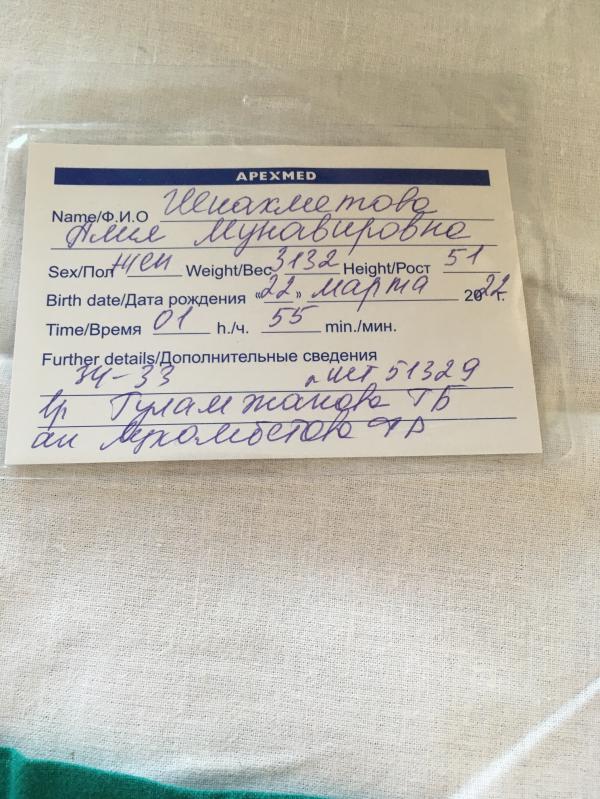 APEXMED
Name/Ф.И.О Шиахметова
Амия Мунавировна
Sex/Пол жен Weight/Вес 3132 Height/Рост 51
Birth date/Дата рождения «22» марта 2022 г.
Time/Время 01 h./ч. 55 min./мин.
Further details/Дополнительные сведения
34-33 51329
вр Гуламжанова ГБ
ак Мухамбетова